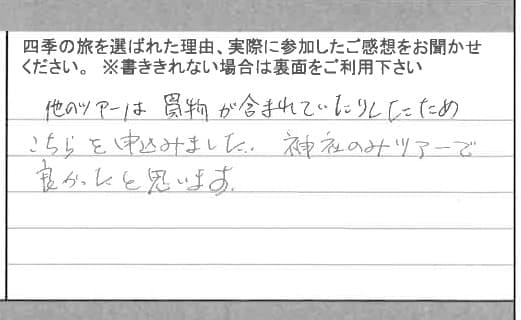 四季の旅を選ばれた理由、実際に参加したご感想をお聞かせ
ください。 ※書ききれない場合は裏面をご利用下さい
他のツアーは 買物が含まれていたりしたため
こちらを申込みました。 神社のみツアーで
良かったと思います。